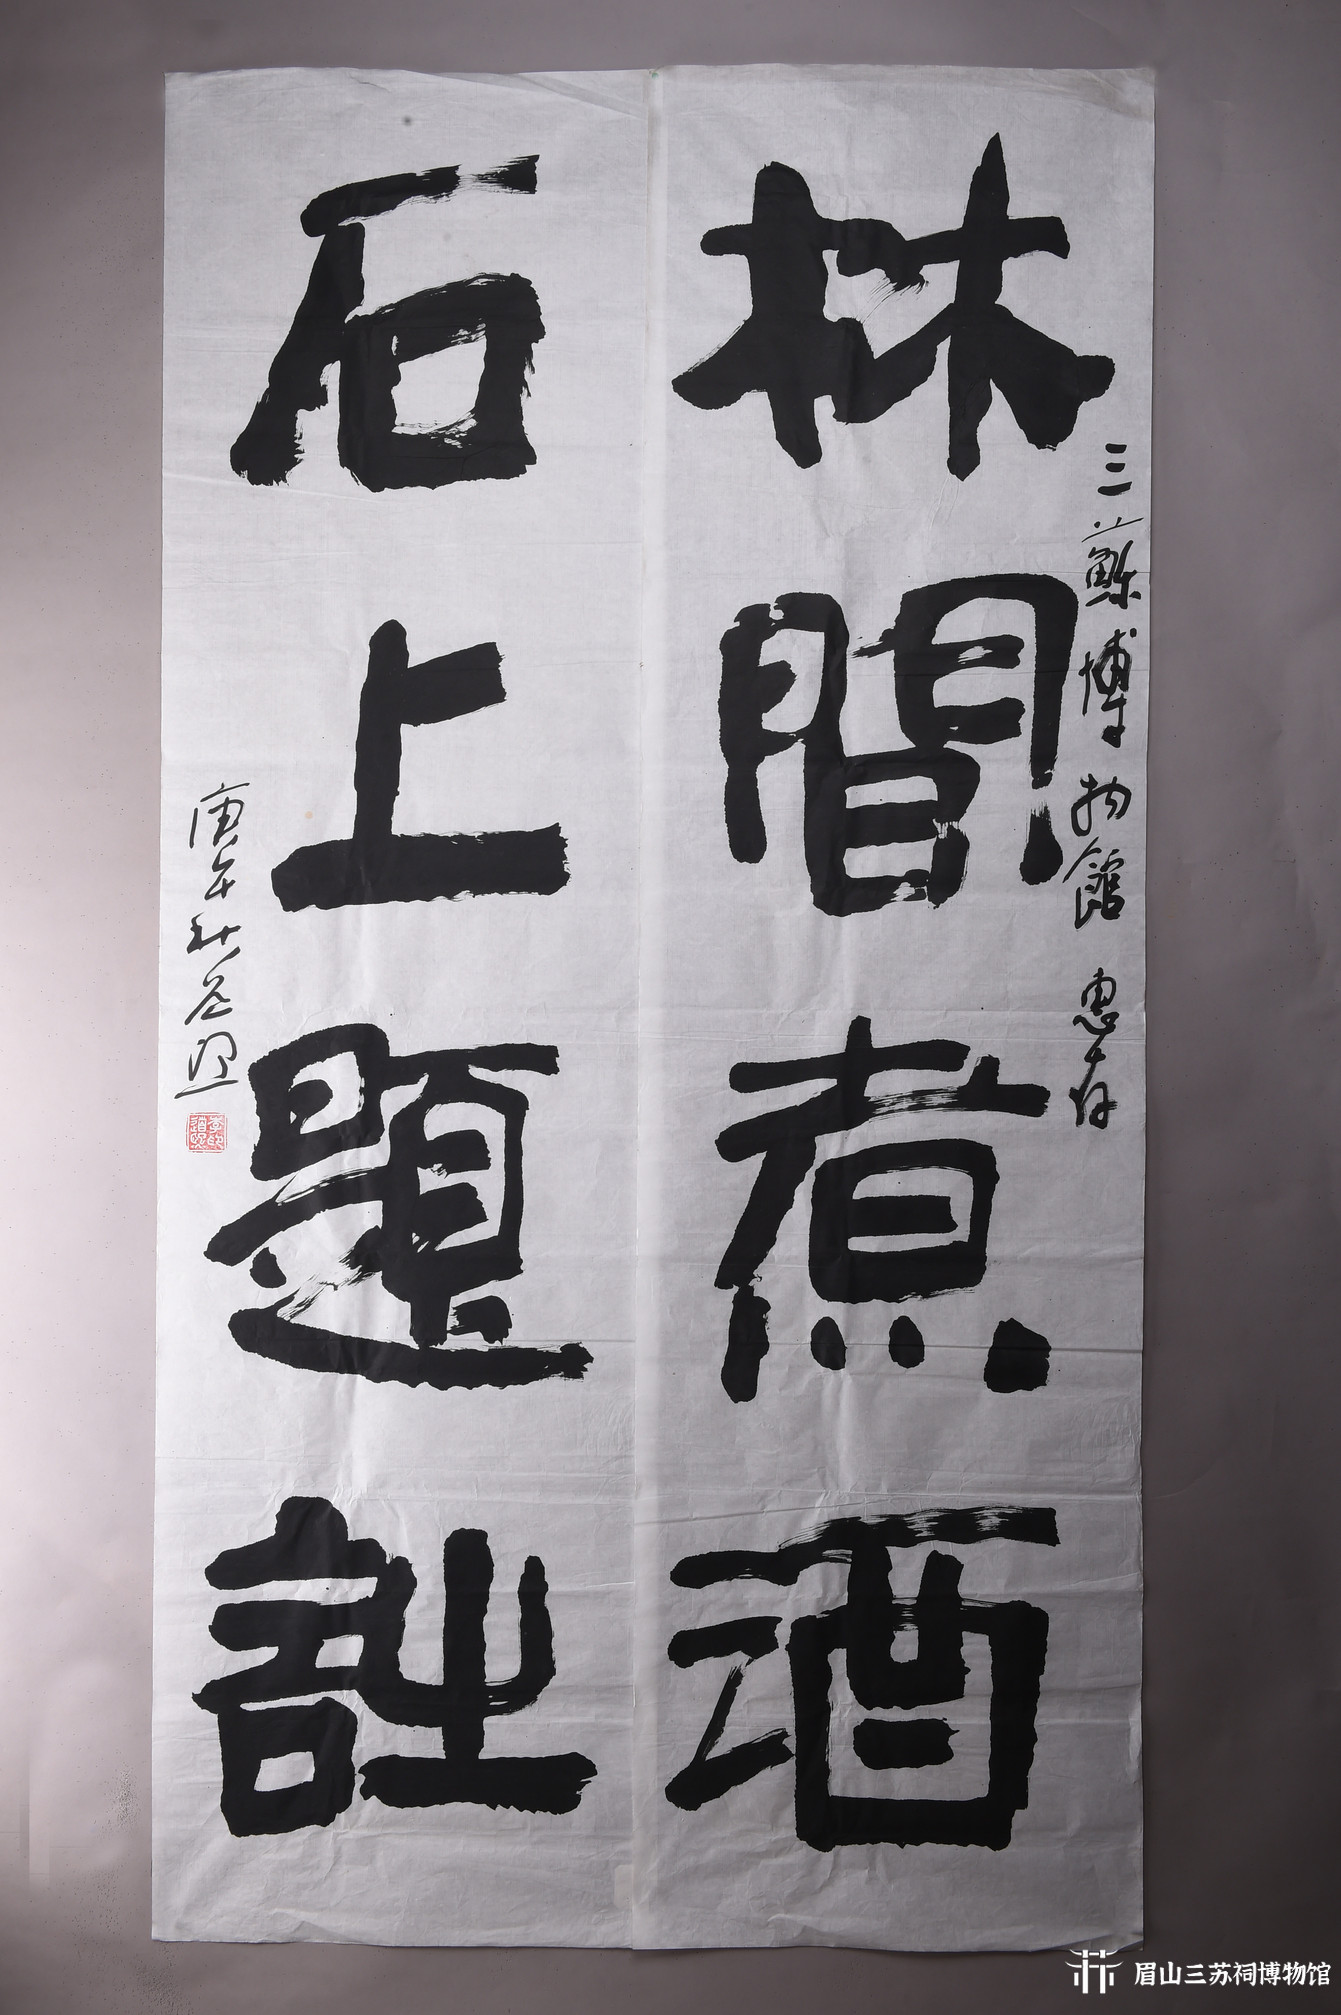 三蘇博物館 惠存
林間煮酒
石上題詩
庚午秋道熙
李印道熙
眉山三苏祠博物馆